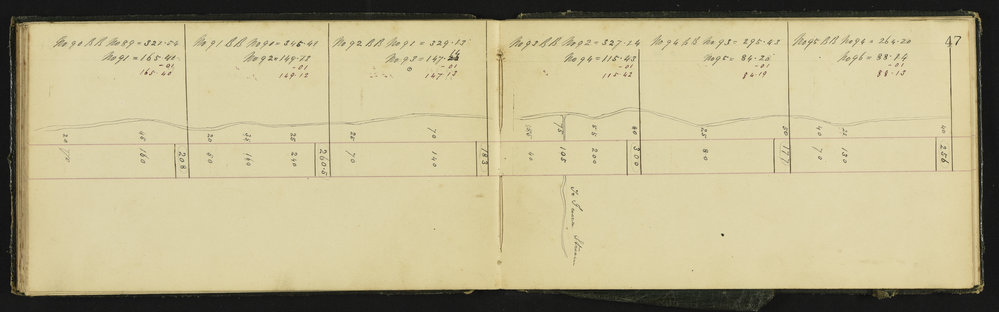 47
No 90 B.B. No 89 = 321.54
No 91 = 165.40
-01
165.40
No 91 B.B. No 90 = 345.41
No 92 = 149.13
-01
149.12
No 92 B.B. No 91 = 329.13
No 93 = 147.
-01
147.13
No 93 B.B. No 92 = 327.14
No 94 = 115.43
-01
115.42
No 94 B.B. No 93 = 295.43
No 95 = 84.20
-01
84.19
No 95 B.B. No 94 = 264.20
No 96 = 88.14
-01
88.13
20 45 20 35 25 25 70
70 180 208 60 140 240 260.5 70 140 183
75 55 80 25 50 40 25 40
40 105 200 300 80 177 70 150 256
To Stream